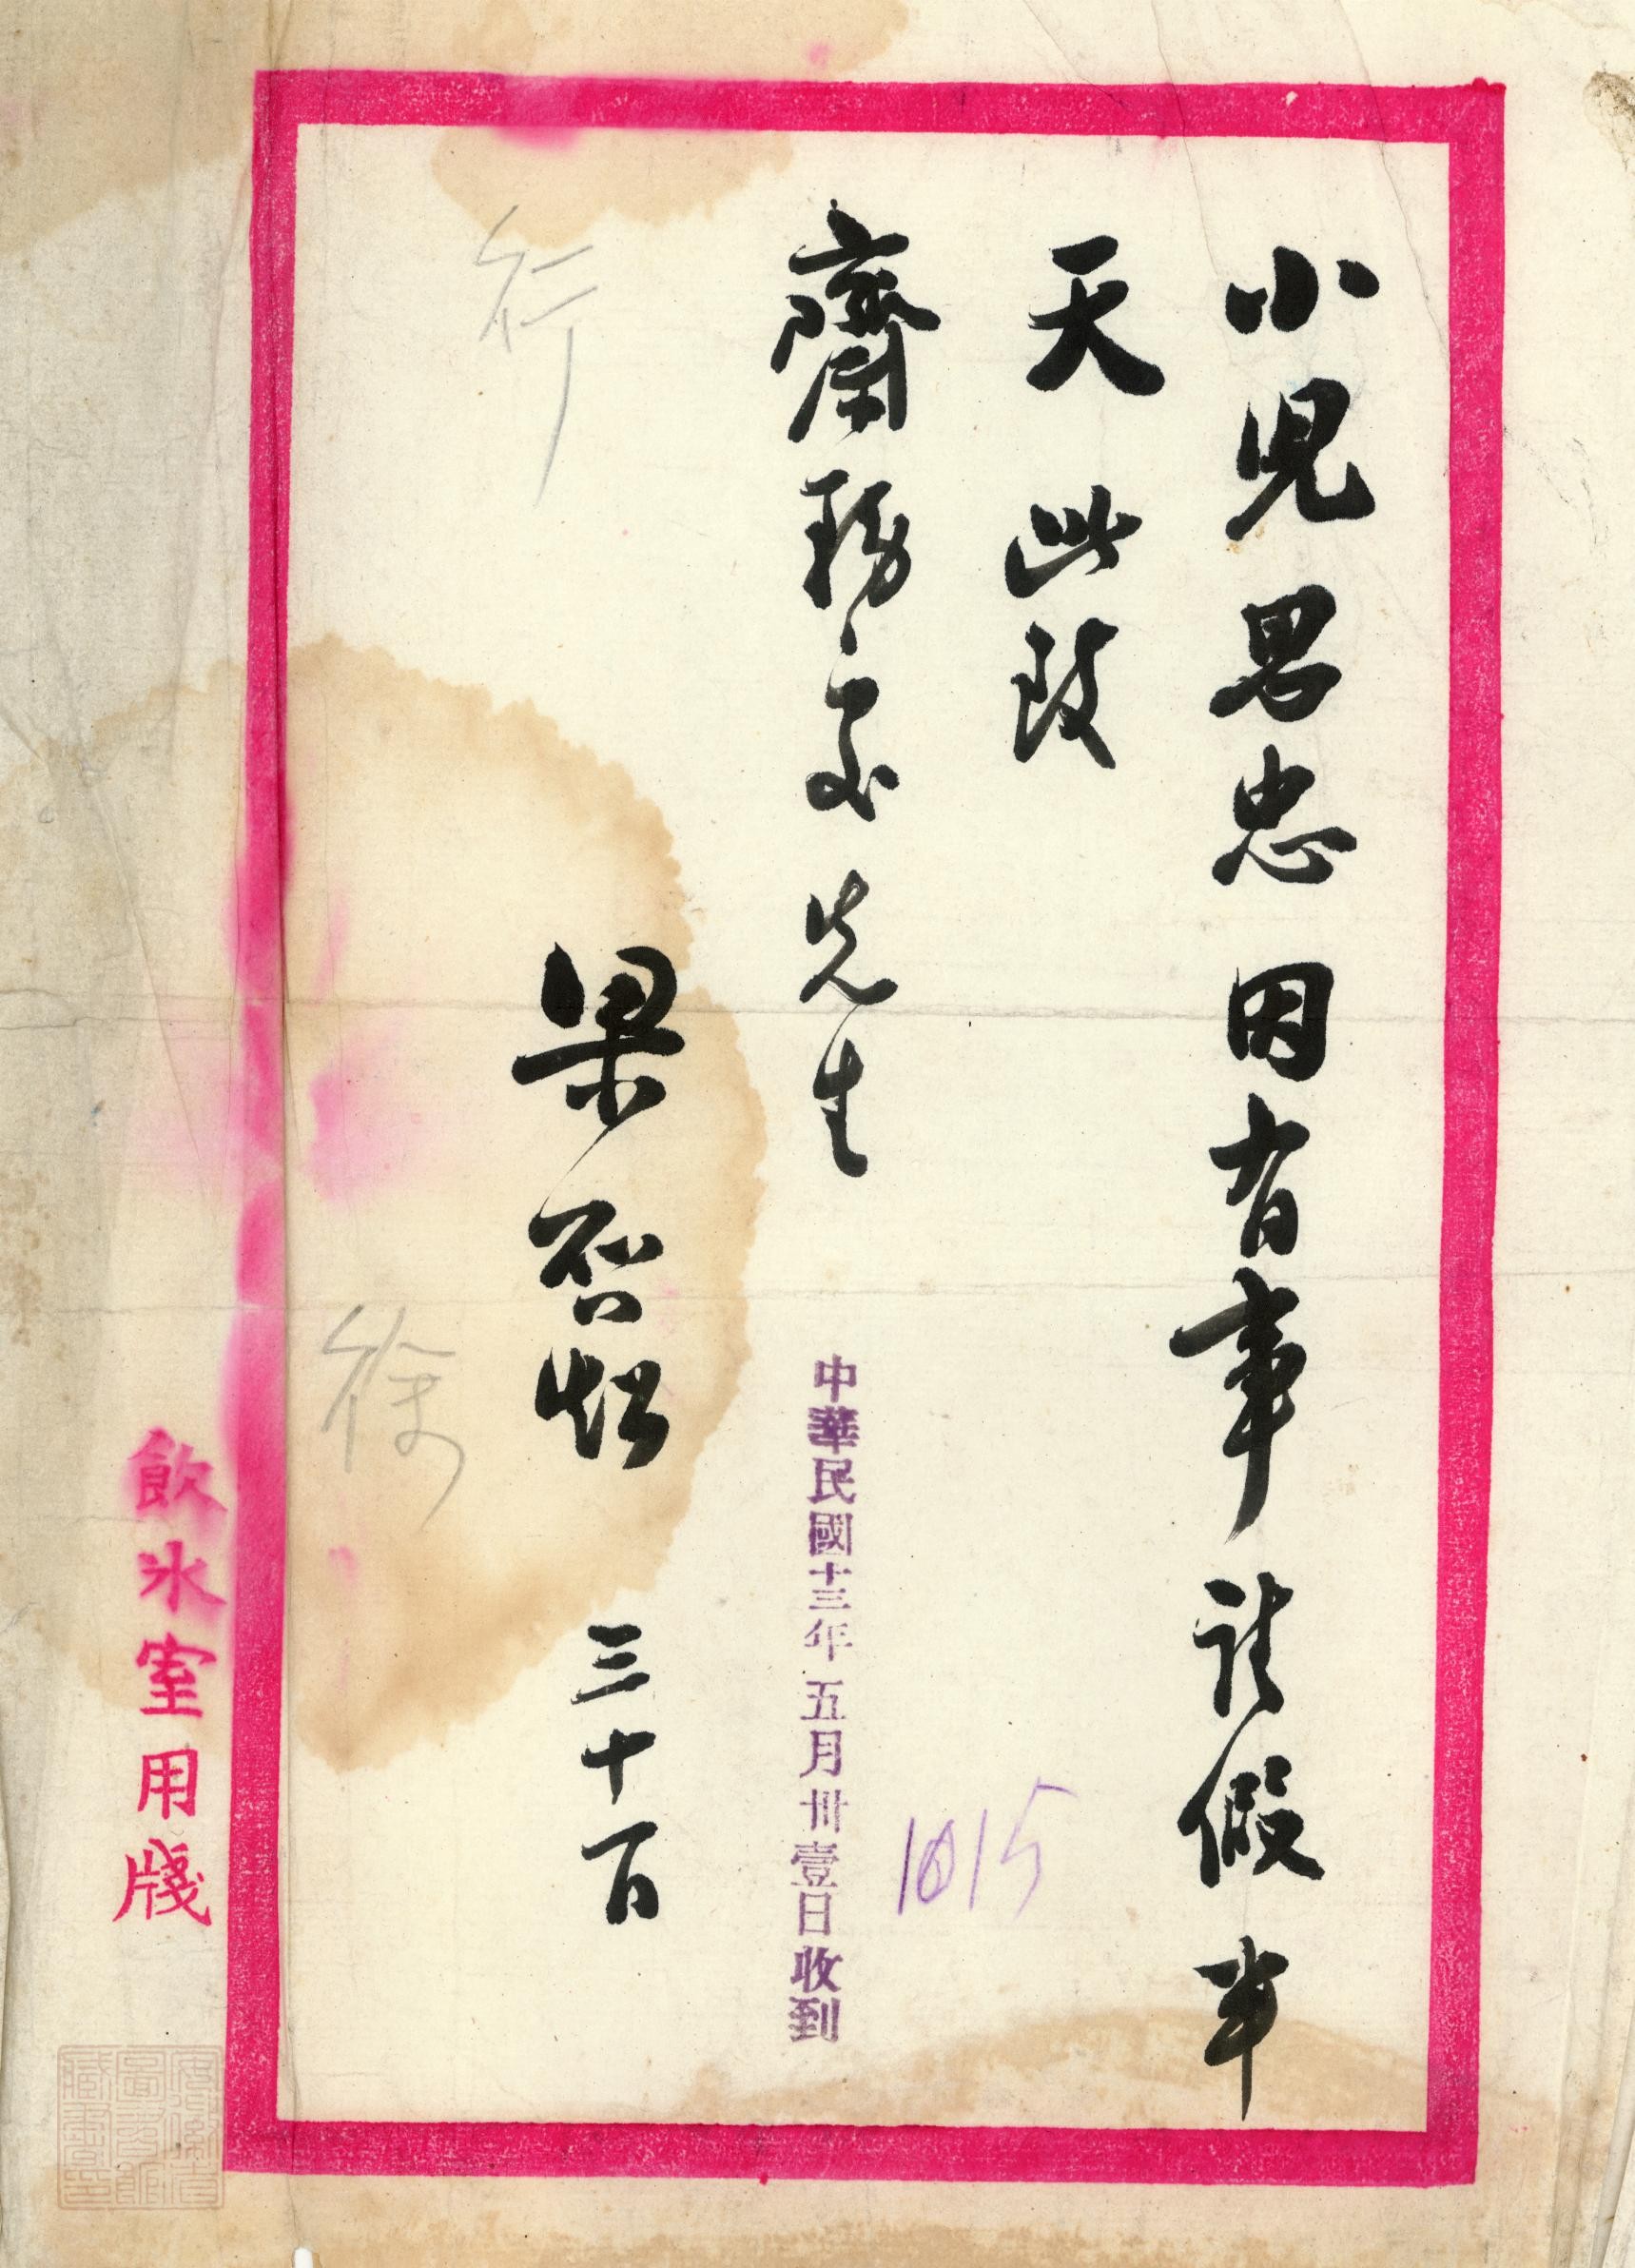 小兒思忠因有事請假半
天此致
齋務處先生
梁啓超 三十日
中華民國十三年五月卅壹日收到
1015
行
徐
飲冰室用牋